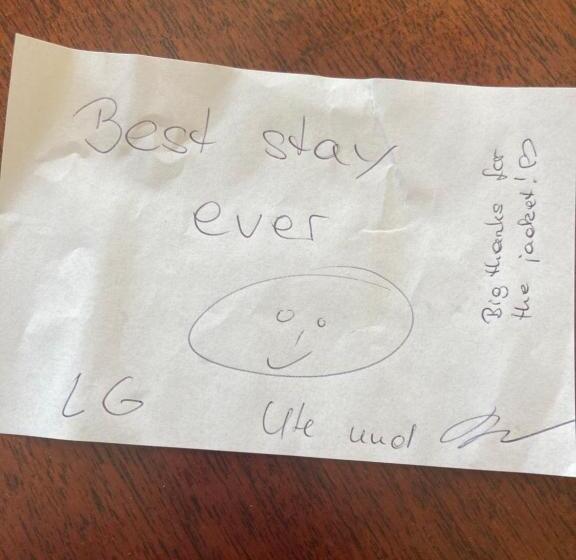 Best stay
ever
LG
Ute und
Big thanks for
the jacket!